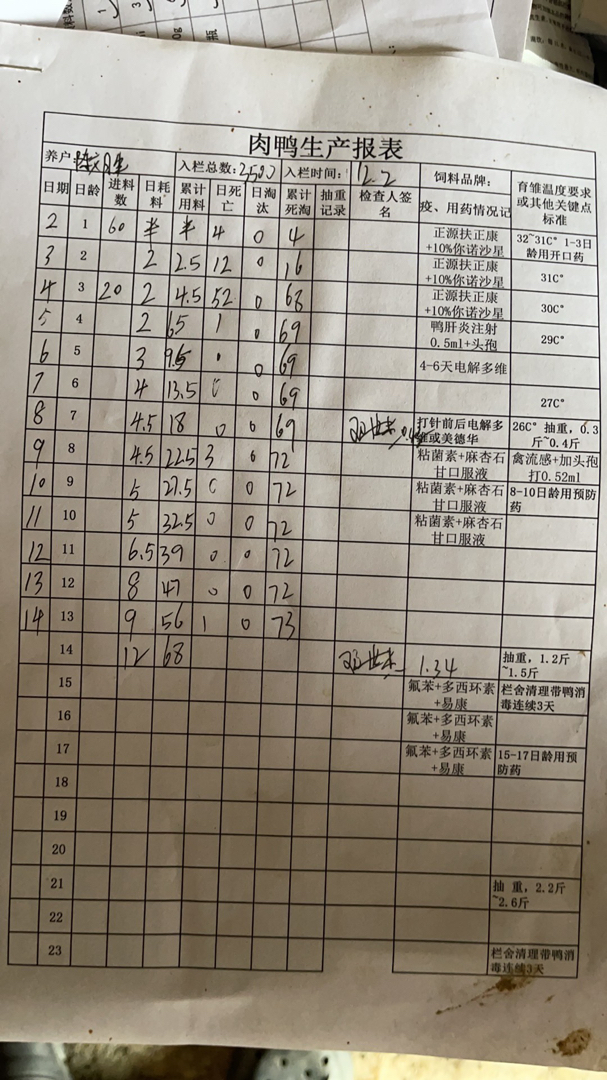 肉鸭生产报表
养户 入栏总数:2500 入栏时间:12.2 饲料品牌: 育雏温度要求或其他关键点标准
日期 日龄 进料数 日耗料 累计用料 日死亡 日淘汰 累计死淘 抽重记录 检查人签名 疫、用药情况记
2 1 60 半 半 4 0 4 正源扶正康+10%你诺沙星 32~31C° 1-3日龄用开口药
3 2 2 2.5 12 0 16 正源扶正康+10%你诺沙星 31C°
4 3 20 2 4.5 52 0 68 正源扶正康+10%你诺沙星 30C°
5 4 2 6.5 1 0 69 鸭肝炎注射0.5ml+头孢 29C°
6 5 3 9.5 0 0 69 4-6天电解多维
7 6 4 13.5 0 0 69 27C°
8 7 4.5 18 0 0 69 打针前后电解多维或美德华 26C° 抽重，0.3斤~0.4斤
9 8 4.5 22.5 3 0 72 粘菌素+麻杏石甘口服液 禽流感+加头孢打0.52ml
10 9 5 27.5 0 0 72 粘菌素+麻杏石甘口服液 8-10日龄用预防药
11 10 5 32.5 0 0 72 粘菌素+麻杏石甘口服液
12 11 6.5 39 0 0 72
13 12 8 47 0 0 72
14 13 9 56 1 0 73
14 12 68 1.34 抽重，1.2斤~1.5斤
15 氟苯+多西环素+易康 栏舍清理带鸭消毒连续3天
16 氟苯+多西环素+易康
17 氟苯+多西环素+易康 15-17日龄用预防药
18
19
20
21 抽 重，2.2斤~2.6斤
22
23 栏舍清理带鸭消毒连续3天